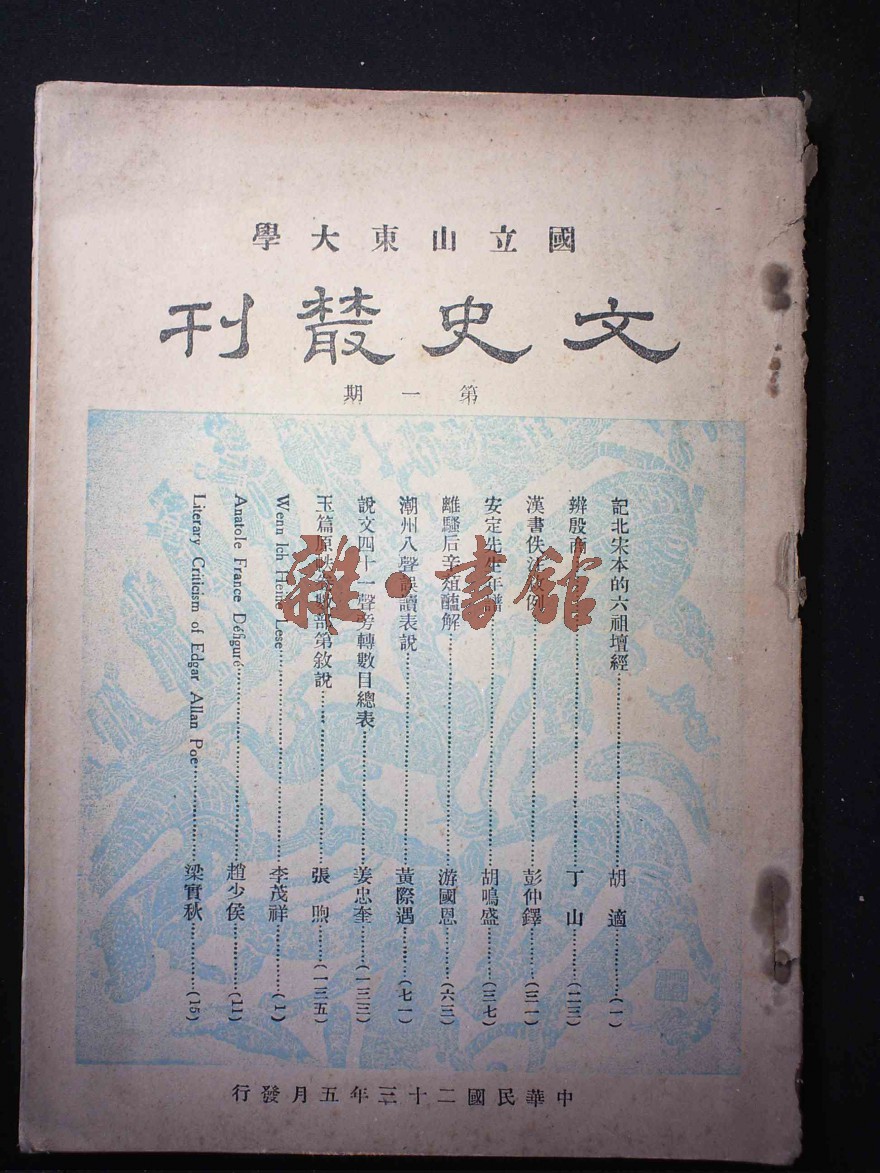 國立山東大學
文史叢刊
第一期
記北宋本的六祖壇經……胡適……(一)
辨殷商……丁山……(二三)
漢書佚注敘例……彭仲鐸……(三一)
安定先生年譜……胡鳴盛……(三七)
離騷后辛菹醢解……游國恩……(六三)
潮州八聲誤讀表說……黃際遇……(七一)
說文四十一聲旁轉數目總表……姜忠奎……(一三三)
玉篇原帙部第敘說……張煦……(一三五)
Wenn Ich Heine Lese……李茂祥……(1)
Anatole France Défiguré……趙少侯……(11)
Literary Criticism of Edgar Allan Poe……梁實秋……(15)
中華民國二十三年五月發行
雜·書館